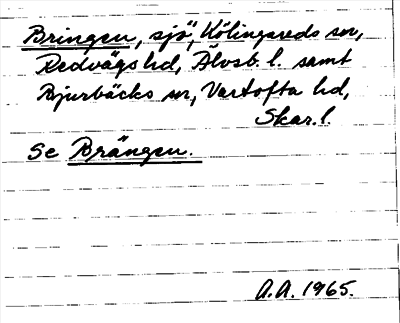 Bringen, sjö, Kölingareds sn,
Redvägs hd, Älvsb. l. samt
Bjurbäcks sn, Vartofta hd,
Skar. l.
Se Brängen.
A.A. 1965.